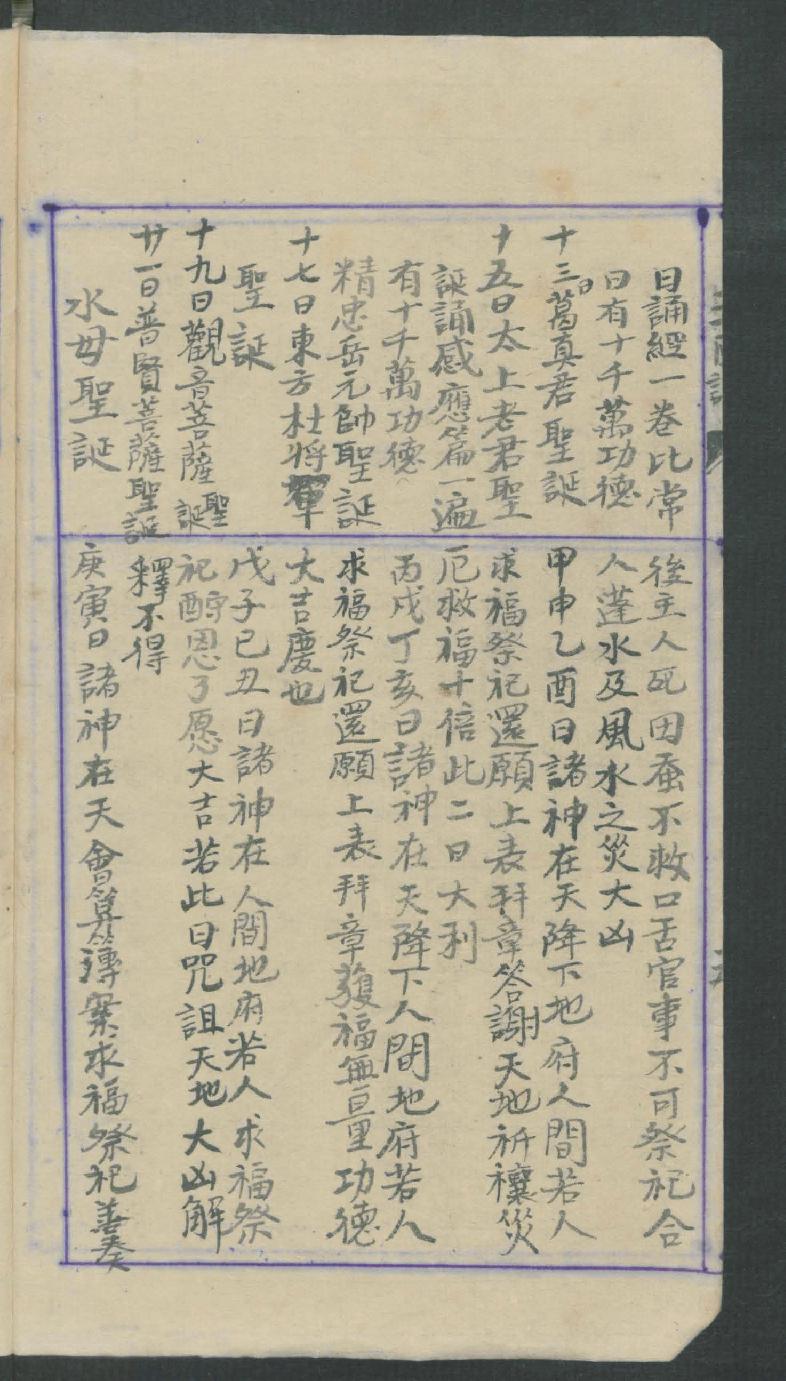 日誦經一卷比常
日有十千萬功德
十三日葛真君聖誕
十五日太上老君聖
誕誦感應篇一遍
有十千萬功德
精忠岳元帥聖誕
十七日東方杜將軍
聖誕
十九日觀音菩薩聖誕
廿一日普賢菩薩聖誕
水母聖誕
後主人死田蚕不救口舌官事不可祭祀合
人蓬水及風水之災大凶
甲申乙酉日諸神在天降下地府人間若人
求福祭祀還願上表拜章答謝天地祈穰災
厄救福十倍此二日大利
丙戌丁亥日諸神在天降下人間地府若人
求福祭祀還願上表拜章獲福無量功德
大吉慶也
戊子己丑日諸神在人間地府若人求福祭
祀酧恩了愿大吉若此日咒詛天地大凶解
釋不得
庚寅日諸神在天會算簿案求福祭祀善奏